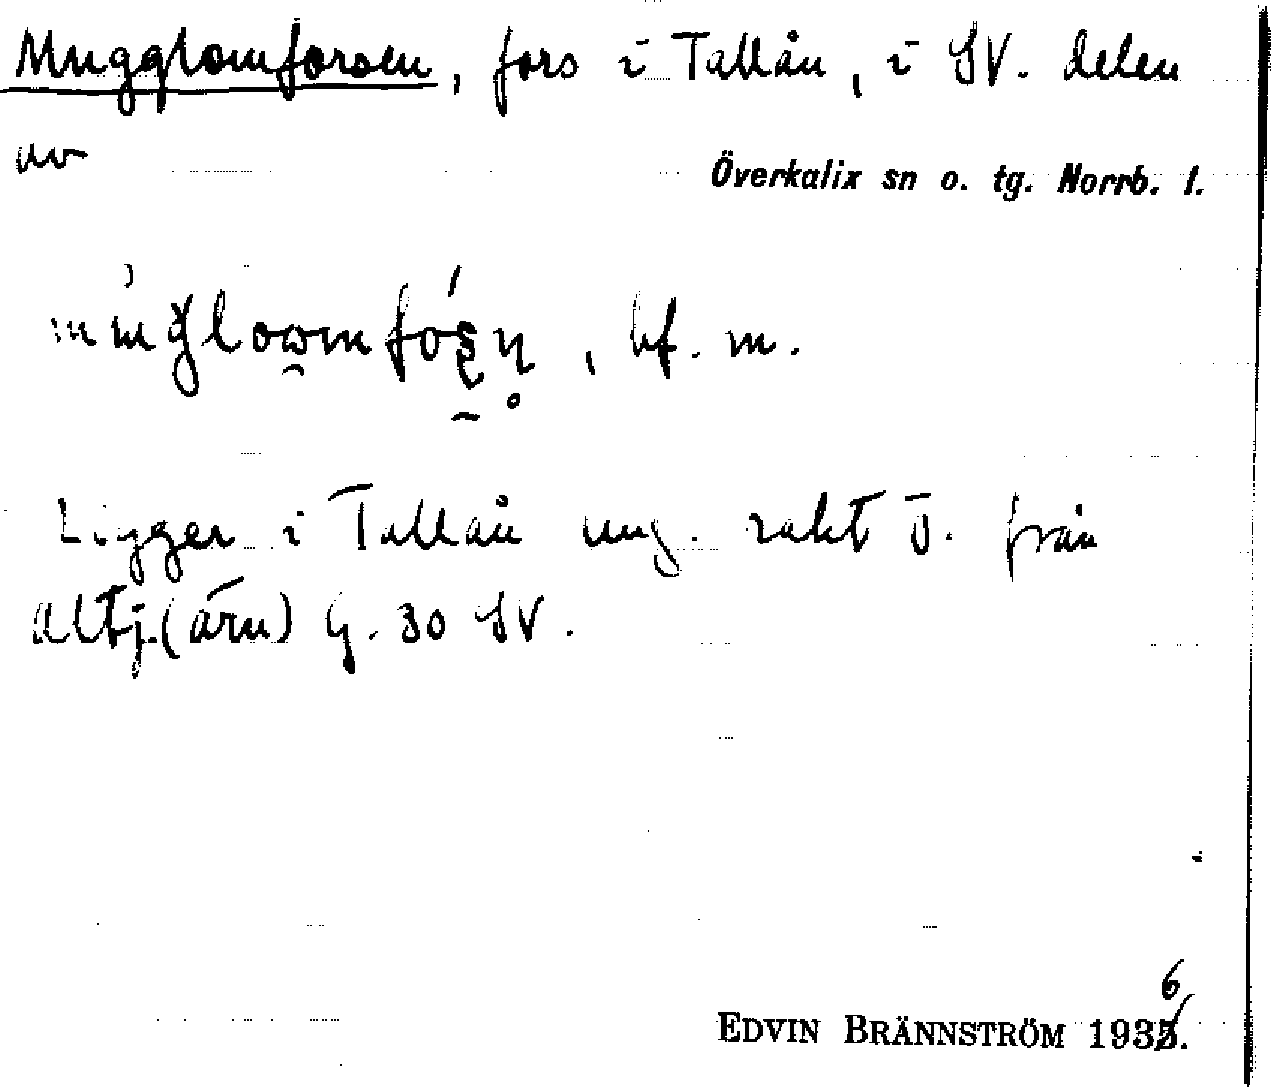 Mugglomforsen, fors i Tallån, i SV. delen
av
Överkalix sn o. tg. Norrb. l.
, bf. m.
Ligger i Tallån ung. rakt ö. från
altj.(ärn) G. 30 SV.
6
EDVIN BRÄNNSTRÖM 1935.